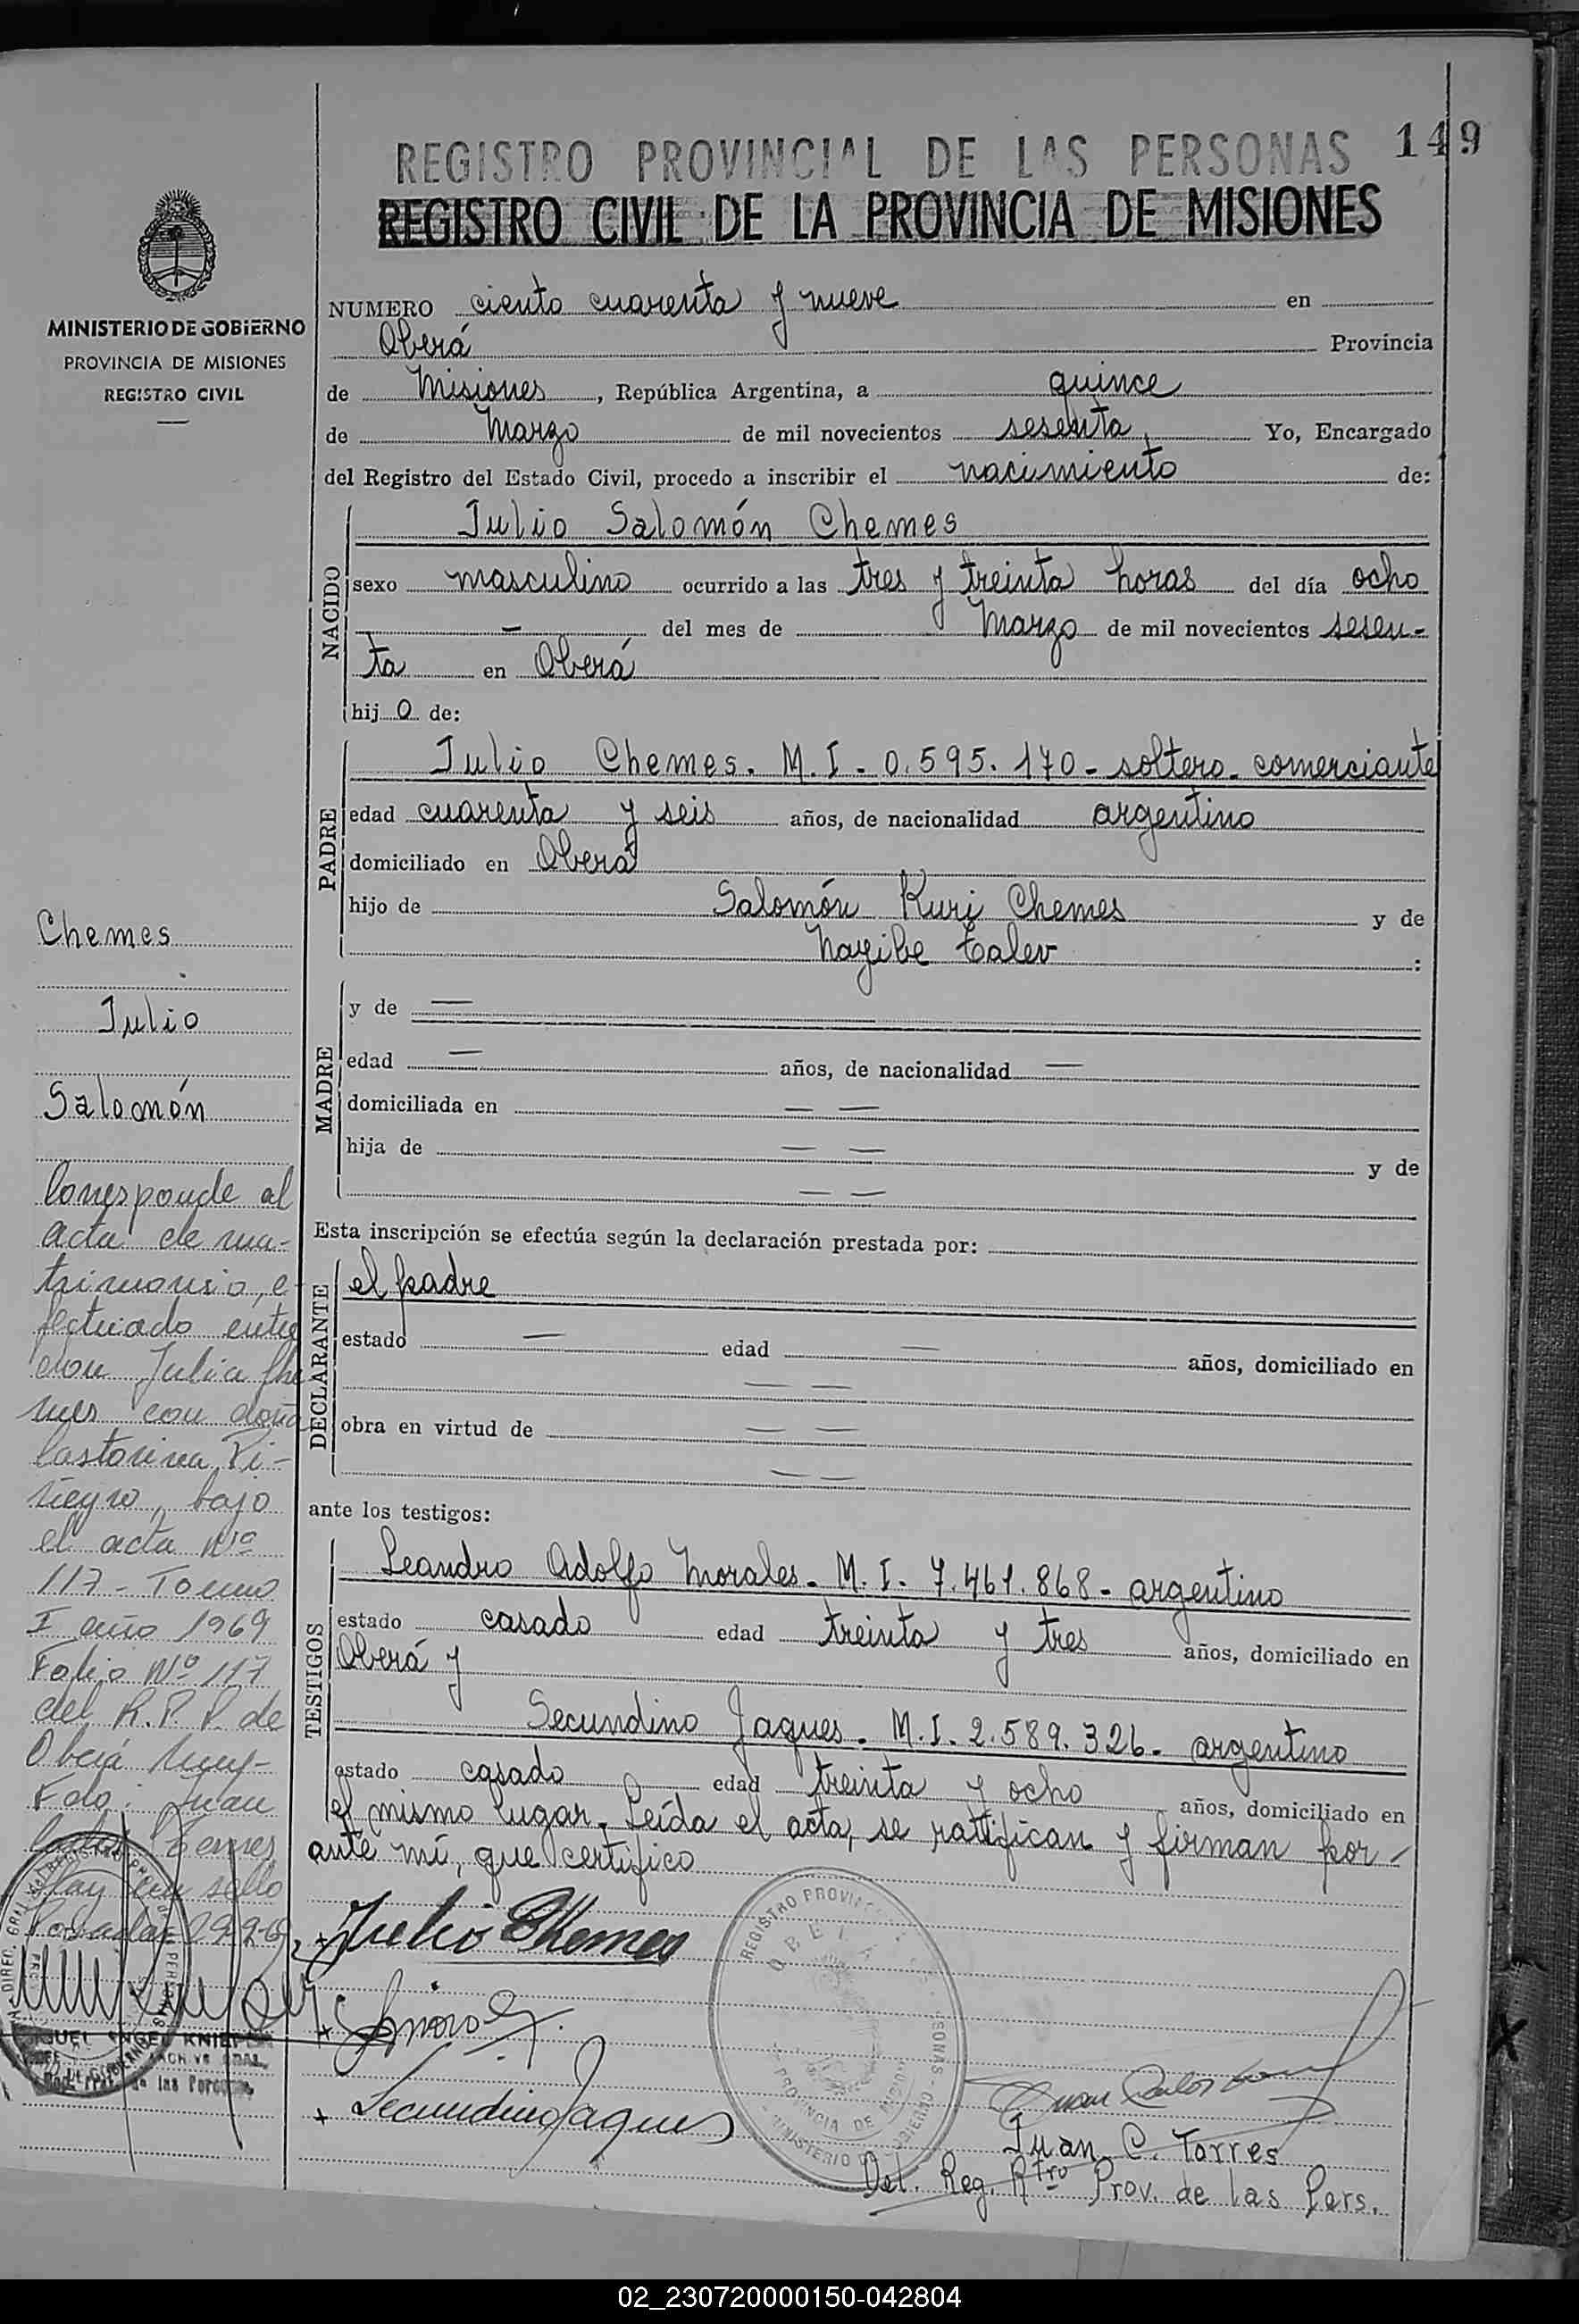 149
REGISTRO PROVINCIAL DE LAS PERSONAS
REGISTRO CIVIL DE LA PROVINCIA DE MISIONES
MINISTERIO DE GOBIERNO
PROVINCIA DE MISIONES
REGISTRO CIVIL
NUMERO ciento cuarenta y nueve en
Oberá Provincia
de Misiones, República Argentina, a quince
de Marzo de mil novecientos sesenta, Yo, Encargado
del Registro del Estado Civil, procedo a inscribir el nacimiento de:
NACIDO
Julio Salomón Chemes
sexo masculino ocurrido a las tres y treinta horas del día ocho
— del mes de Marzo de mil novecientos sesen-
ta en Oberá
hijo de:
PADRE
Julio Chemes. M.I. 0.595.170 - soltero - comerciante
edad cuarenta y seis años, de nacionalidad argentino
domiciliado en Oberá
hijo de Salomón Kuri Chemes y de
Nayibe Talev :
MADRE
y de —
edad — años, de nacionalidad —
domiciliada en — —
hija de — — y de
— —
Esta inscripción se efectúa según la declaración prestada por:
DECLARANTE
el padre
estado — edad — años, domiciliado en
— —
obra en virtud de — —
— —
ante los testigos:
TESTIGOS
Leandro Adolfo Morales - M.I. 7.461.868 - argentino
estado casado edad treinta y tres años, domiciliado en
Oberá y
Secundino Jaques - M.I. 2.589.326 - argentino
estado casado edad treinta y ocho años, domiciliado en
el mismo lugar. Leída el acta, se ratifican y firman por-
ante mí, que certifico
Julio Chemes
Secundino Jaques
Juan C. Torres
Del. Reg. Rtro Prov. de las Pers.
Chemes
Julio
Salomón
Corresponde al
acta de ma-
trimonio, e-
fectuado entre
don Julio Che
mes con doña
Castorina Pi-
ñeyro, bajo
el acta Nº
117 - Tomo
I año 1969
Folio Nº 117
del R.P.P. de
Oberá
Fdo: Juan
Carlos Torres
Hay un sello
Posadas 29-9-69
MIGUEL ANGEL
ARCHIVO GRAL.
de las Personas
REGISTRO PROVINCIAL PERSONAS
OBERA
PROVINCIA DE MISIONES
MINISTERIO DE GOBIERNO
02_230720000150-042804